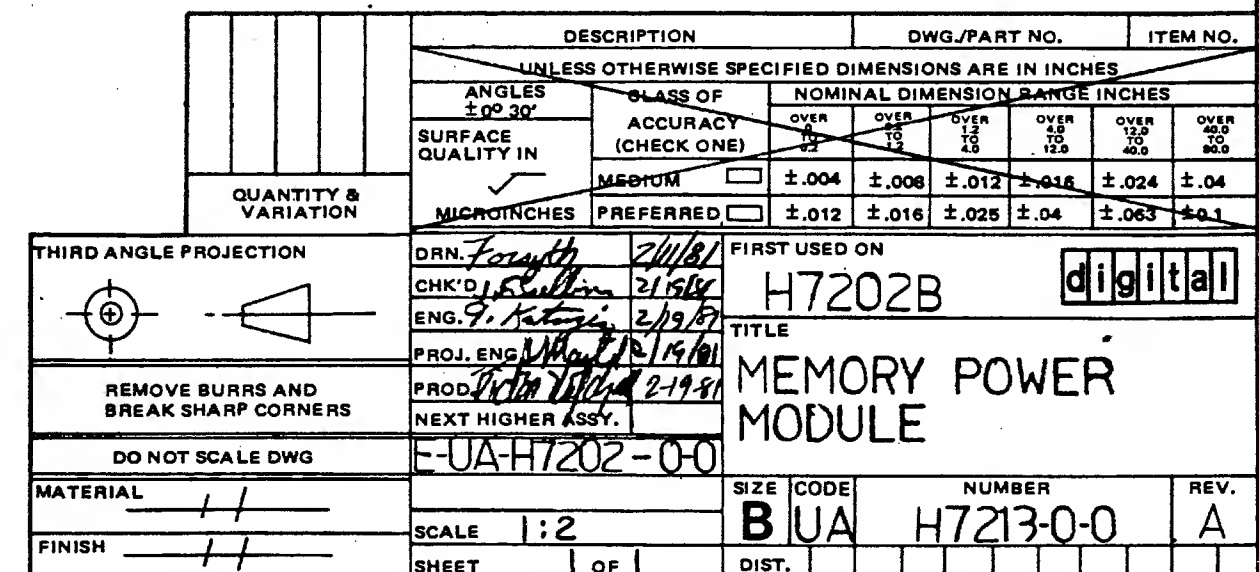 DESCRIPTION DWG./PART NO. ITEM NO.
UNLESS OTHERWISE SPECIFIED DIMENSIONS ARE IN INCHES
ANGLES
±0° 30'
CLASS OF
ACCURACY
(CHECK ONE)
NOMINAL DIMENSION RANGE INCHES
SURFACE
QUALITY IN
MICROINCHES
OVER
0
TO
0.2
OVER
0.2
TO
1.2
OVER
1.2
TO
4.0
OVER
4.0
TO
12.0
OVER
12.0
TO
40.0
OVER
40.0
TO
80.0
MEDIUM ±.004 ±.008 ±.012 ±.016 ±.024 ±.04
PREFERRED ±.012 ±.016 ±.025 ±.04 ±.063 ±0.1
QUANTITY &
VARIATION
THIRD ANGLE PROJECTION
REMOVE BURRS AND
BREAK SHARP CORNERS
DO NOT SCALE DWG
MATERIAL
FINISH
DRN. Forsyth 2/11/81
CHK'D 2/19/81
ENG. 2/19/81
PROJ. ENG 2/19/81
PROD. 2-19-81
NEXT HIGHER ASSY.
E-UA-H7202-0-0
SCALE 1:2
SHEET 1 OF 1
FIRST USED ON
H7202B
digital
TITLE
MEMORY POWER
MODULE
SIZE CODE NUMBER REV.
B UA H7213-0-0 A
DIST.